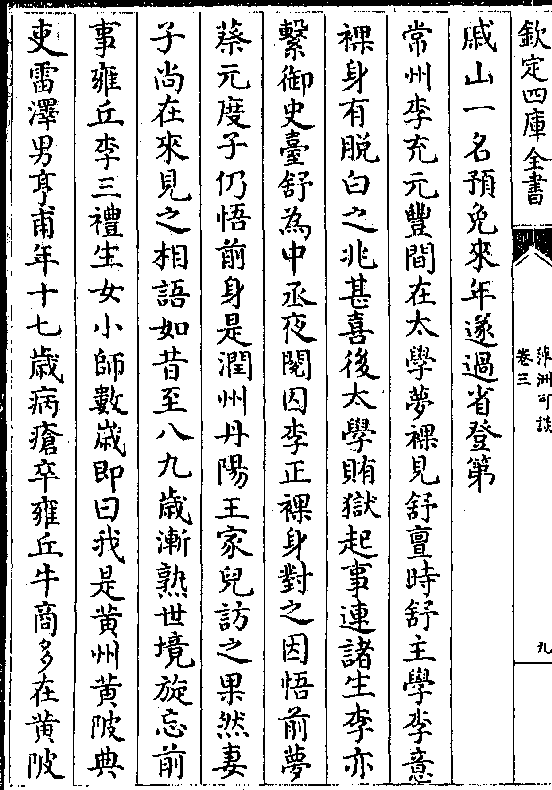 欽定四庫全書
萍洲可談
卷三
九
戚山一名預免來年遂過省登第
常州李充元豐間在太學夢裸見舒亶時舒主學李意
裸身有脱白之兆甚喜後太學賄獄起事連諸生李亦
繫御史臺舒為中丞夜閱囚李正裸身對之因悟前夢
蔡元度子仍悟前身是潤州丹陽王家兒訪之果然妻
子尚在來見之相語如昔至八九歲漸熟世境旋忘前
事雍丘李三禮生女小師數歲即曰我是黄州黄陂典
吏雷澤男亨甫年十七歲病瘡卒雍丘牛商多在黄陂